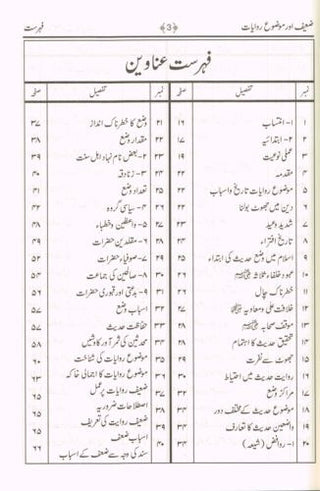 ضعیف اور موضوع روایات ﴿3﴾ فہرست
فہرست عناوین
نمبر تفصیل صفحہ
۱ ۱- انتساب ۱۶
۲ ۲- ابتدائیہ ۱۷
۳ عملی نوعیت ۱۹
۴ مقدمہ ۲۲
۵ موضوع روایات تاریخ و اسباب ۲۲
۶ دین میں جھوٹ بولنا ۲۲
۷ شدید وعید ۲۳
۸ تاریخ افتراء ۲۴
۹ اسلام میں وضع حدیث کی ابتداء ۲۵
۱۰ عہد خلفاء ثلاثہ ۲۶
۱۱ خطرناک چال
۱۲ خلافت علی و معاویہ ۲۷
۱۳ موقف صحابہ ۲۸
۱۴ تحقیق حدیث کا اہتمام ۲۸
۱۵ جھوٹ سے نفرت ۲۹
۱۶ روایت حدیث میں احتیاط ۳۰
۱۷ مراکز وضع ۳۲
۱۸ موضوع حدیث کے مختلف دور ۳۴
۱۹ واضعین حدیث کا تعارف ۳۴
۲۰ ۱- روافض (شیعہ) ۳۴
نمبر تفصیل صفحہ
۲۱ وضع کا خطرناک انداز ۳۷
۲۲ مقدار وضع ۳۸
۲۳ ۲- بعض نام نہاد اہل سنت ۳۹
۲۴ ۳- زنادقہ ۴۰
۲۵ تعداد وضع ۴۱
۲۶ ۴- سیاسی گروہ ۴۲
۲۷ ۵- واعظین و خطباء
۲۸ ۶- مقلدین حضرات ۴۹
۲۹ ۷- صوفیاء حضرات ۵۲
۳۰ ۸- صالحین کی جماعت ۵۴
۳۱ ۹- بدعتی اور قبوری حضرات ۵۶
۳۲ اسباب وضع ۵۷
۳۳ حفاظت حدیث ۵۷
۳۴ محدثین کی ثمر آور کاوشیں ۵۸
۳۵ موضوع روایات کی شناخت ۶۰
۳۶ موضوع روایات کا اجمالی خاکہ ۶۳
۳۷ ضعیف روایات پر عمل ۶۵
۳۸ اصطلاحات ضروریہ ۶۵
۳۹ ضعیف روایت کی تعریف ۶۵
۴۰ اسباب ضعف
سند کی وجہ سے ضعف کے اسباب ۶۶